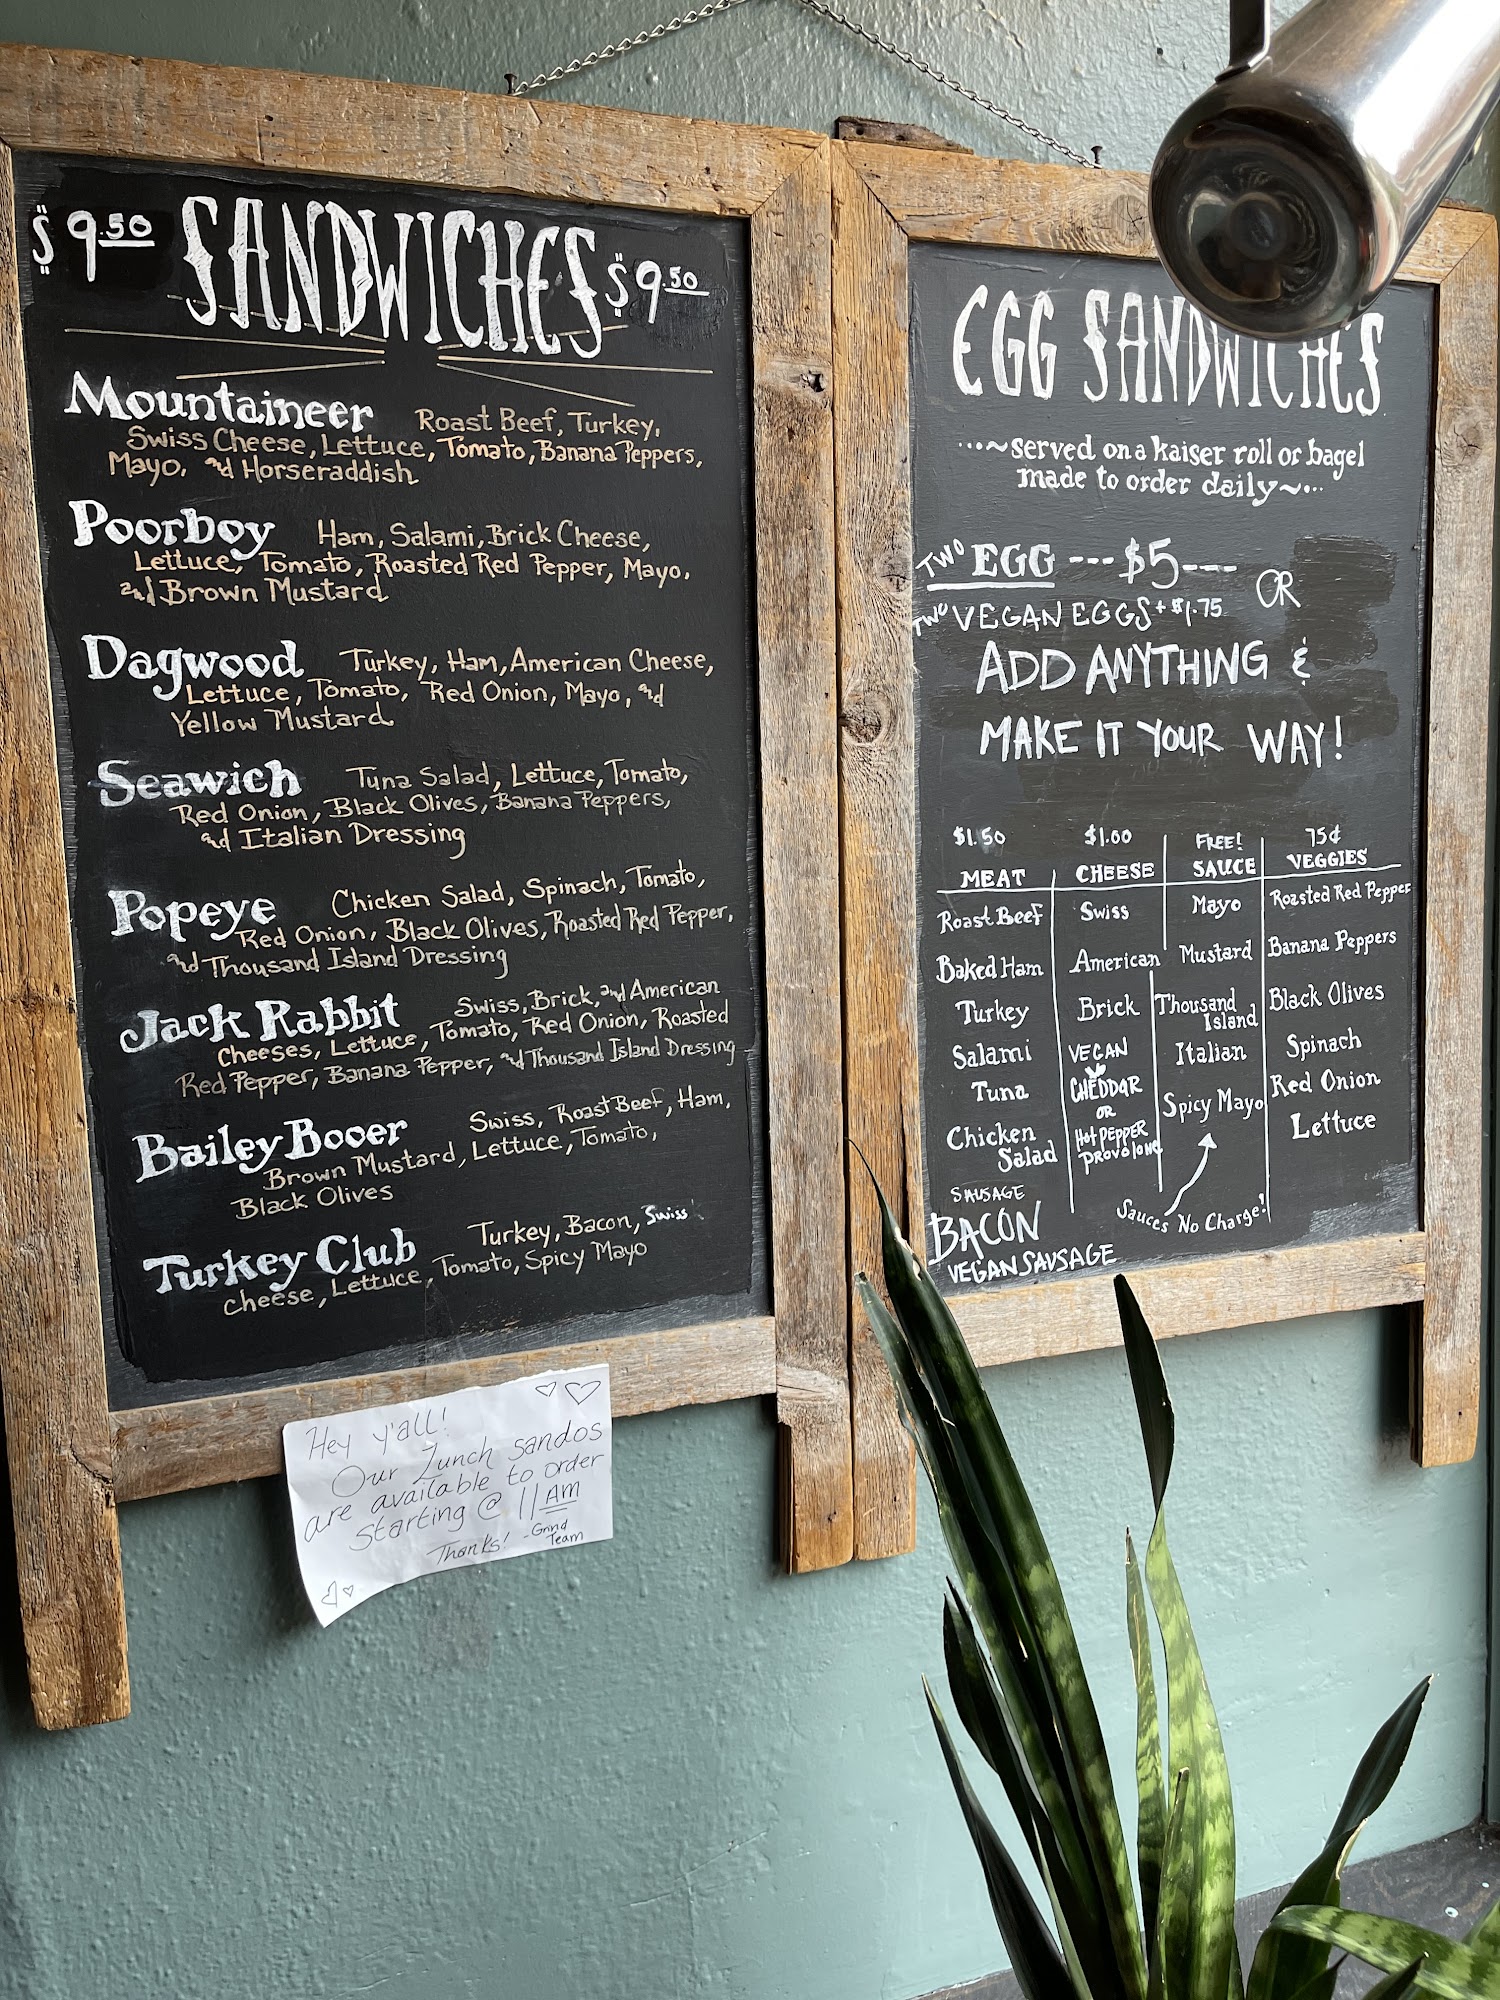 $9.50 SANDWICHES $9.50
Mountaineer Roast Beef, Turkey,
Swiss Cheese, Lettuce, Tomato, Banana Peppers,
Mayo, and Horseraddish
Poorboy Ham, Salami, Brick Cheese,
Lettuce, Tomato, Roasted Red Pepper, Mayo,
and Brown Mustard
Dagwood Turkey, Ham, American Cheese,
Lettuce, Tomato, Red Onion, Mayo, and
Yellow Mustard
Seawich Tuna Salad, Lettuce, Tomato,
Red Onion, Black Olives, Banana Peppers,
and Italian Dressing
Popeye Chicken Salad, Spinach, Tomato,
Red Onion, Black Olives, Roasted Red Pepper,
and Thousand Island Dressing
Jack Rabbit Swiss, Brick, and American
Cheeses, Lettuce, Tomato, Red Onion, Roasted
Red Pepper, Banana Pepper, and Thousand Island Dressing
Bailey Booer Swiss, Roast Beef, Ham,
Brown Mustard, Lettuce, Tomato,
Black Olives
Turkey Club Turkey, Bacon, Swiss
Cheese, Lettuce, Tomato, Spicy Mayo
Hey y'all!
Our Lunch sandos
are available to order
starting @ 11AM
Thanks! -Grind
Team
EGG SANDWICHES
...~served on a kaiser roll or bagel
made to order daily~...
TWO EGG ---$5--- OR
TWO VEGAN EGGS +$1.75
ADD ANYTHING &
MAKE IT YOUR WAY!
$1.50 $1.00 FREE! 75¢
MEAT CHEESE SAUCE VEGGIES
Roast Beef Swiss Mayo Roasted Red Pepper
Baked Ham American Mustard Banana Peppers
Turkey Brick Thousand Island Black Olives
Salami VEGAN Italian Spinach
Tuna CHEDDAR Spicy Mayo Red Onion
OR
Chicken Salad HOT PEPPER PROVOLONE Lettuce
SAUSAGE Sauces No Charge!
BACON
VEGAN SAUSAGE